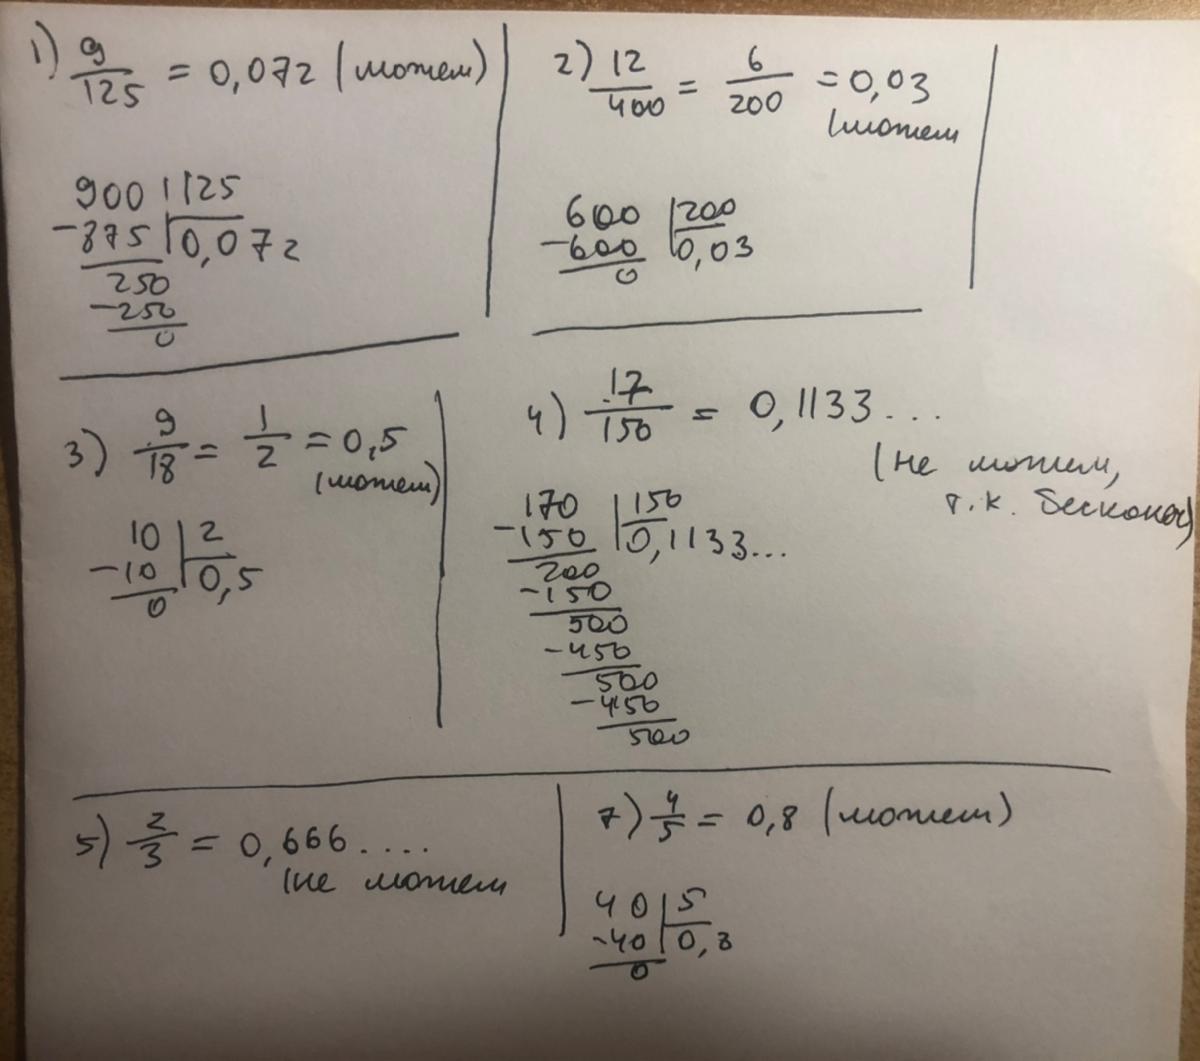 1) 9/125 = 0,072 (можем)
900 125
-875 0,072
250
-250
0
2) 12/400 = 6/200 = 0,03
(можем
600 200
-600 0,03
0
3) 9/18 = 1/2 = 0,5
(можем)
10 2
-10 0,5
0
4) 17/150 = 0,1133...
(не можем,
т.к. бесконеч)
170 150
-150 0,1133...
200
-150
500
-450
500
-450
500
5) 2/3 = 0,666....
(не можем
7) 4/5 = 0,8 (можем)
40 5
-40 0,8
0